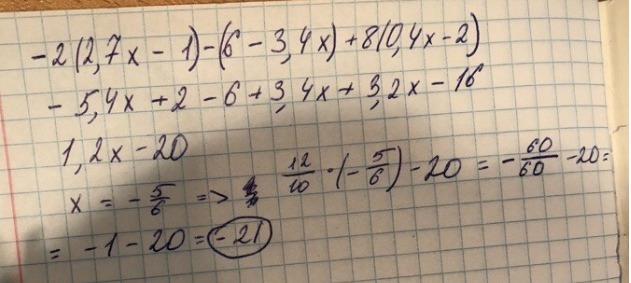 -2(2,7x - 1)-(6 - 3,4x)+8(0,4x-2)
- 5,4x + 2 - 6 + 3,4x + 3,2x - 16
1,2x - 20
x = - 5/6 => 12/10 · (- 5/6) - 20 = - 60/60 - 20 =
= - 1 - 20 = - 21